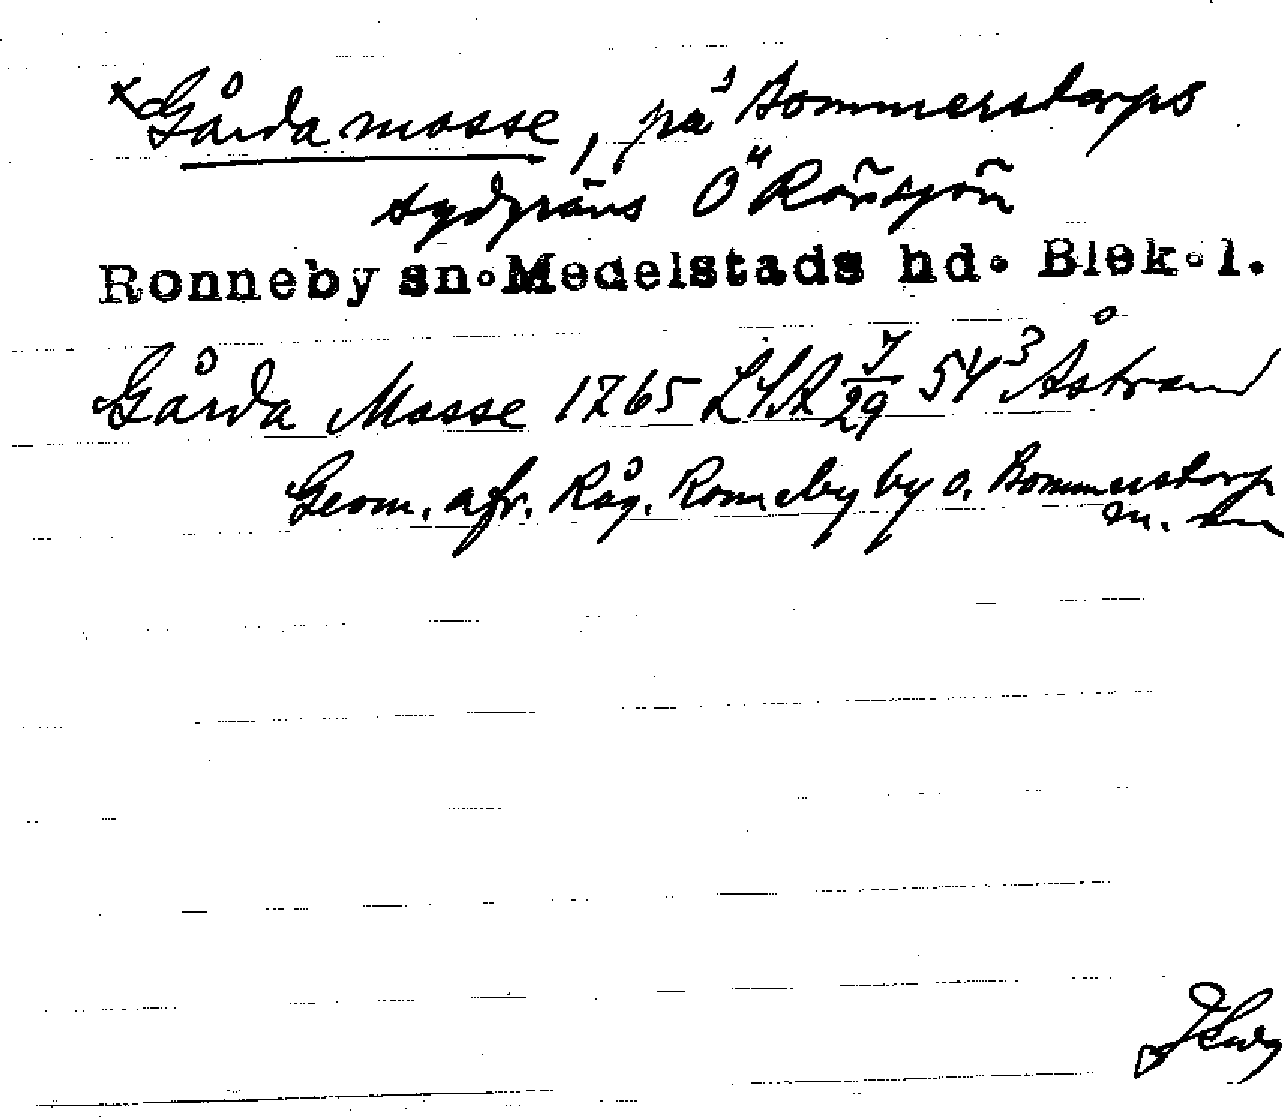 ×Gårda mosse, på Bommerstorps
sydgräns Ö Rönsjön
Ronneby sn. Medelstads hd. Blek. l.
Gårda Mosse 1765 LSA 7/29 54³ Åstrand
Geom. afr. Råg. Ronneby by o. Bommerstorp
m. en